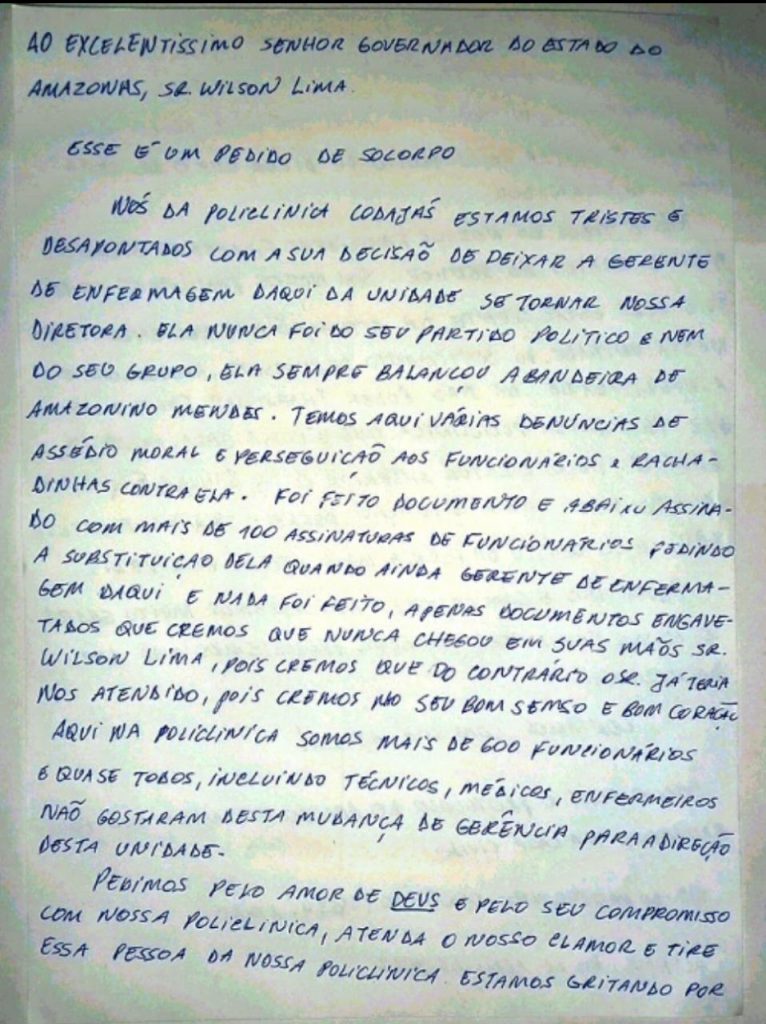 AO EXCELENTÍSSIMO SENHOR GOVERNADOR DO ESTADO DO
AMAZONAS, SR. WILSON LIMA.
ESSE É UM PEDIDO DE SOCORPO
NÓS DA POLICLINICA CODAJÁS ESTAMOS TRISTES E
DESAPONTADOS COM A SUA DECISAÕ DE DEIXAR A GERENTE
DE ENFERMAGEM DAQUI DA UNIDADE SE TORNAR NOSSA
DIRETORA. ELA NUNCA FOI DO SEU PARTIDO POLITICO E NEM
DO SEU GRUPO, ELA SEMPRE BALANCOU A BANDEIRA DE
AMAZONINO MENDES. TEMOS AQUI VÁRIAS DENÚNCIAS DE
ASSÉDIO MORAL E PERSEGUICAÕ AOS FUNCIONÁRIOS E RACHA-
DINHAS CONTRA ELA. FOI FEITO DOCUMENTO E ABAIXU ASSINA-
DO COM MAIS DE 100 ASSINATURAS DE FUNCIONÁRIOS PEDINDO
A SUBSTITUIÇAO DELA QUANDO AINDA GERENTE DE ENFERMA-
GEM DAQUI E NADA FOI FEITO, APENAS DOCUMENTOS ENGAVE-
TADOS QUE CREMOS QUE NUNCA CHEGOU EM SUAS MAÕS SR.
WILSON LIMA, POIS CREMOS QUE DO CONTRÁRIO O SR. JÁ TERIA
NOS ATENDIDO, POIS CREMOS NO SEU BOM SEMSO E BOM CORAÇAÕ
AQUI NA POLICLINICA SOMOS MAIS DE 600 FUNCIONÁRIOS
E QUASE TODOS, INCLUINDO TÉCNICOS, MÉDICOS, ENFERMEIROS
NAÕ GOSTARAM DESTA MUDANÇA DE GERÊNCIA PARA A DIREÇAÕ
DESTA UNIDADE.
PEDIMOS PELO AMOR DE DEUS E PELO SEU COMPROMISSO
COM NOSSA POLICLINICA, ATENDA O NOSSO CLAMOR E TIRE
ESSA PESSOA DA NOSSA POLICLINICA. ESTAMOS GRITANDO POR